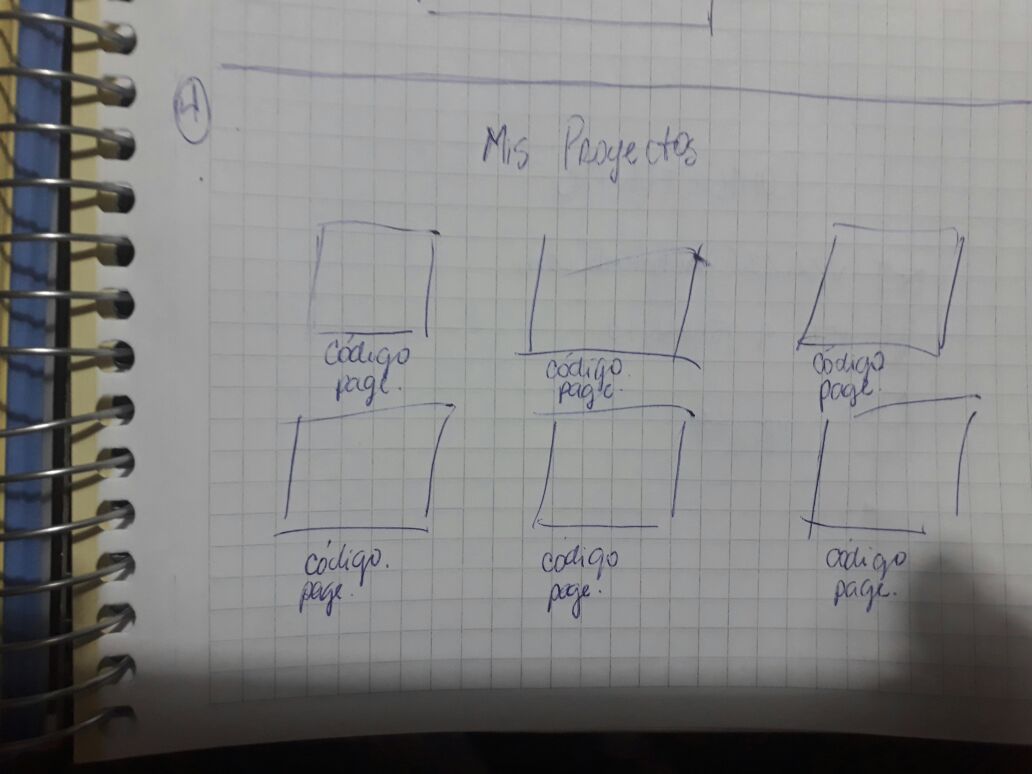 4
Mis Proyectos
código
page.
código.
page.
código
page.
código.
page.
código
page.
código
page.